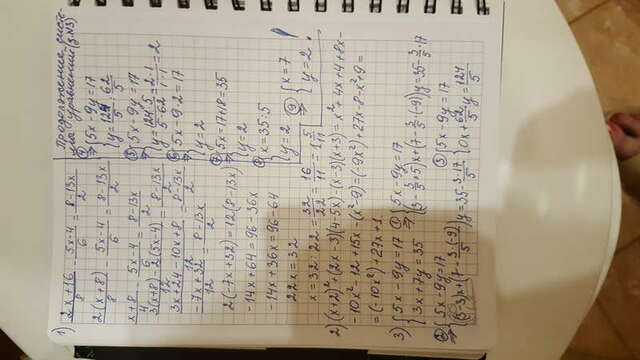 1) (2x+16)/8 - (5x-4)/6 = (8-13x)/2
2(x+8)/8 - (5x-4)/6 = (8-13x)/2
(x+8)/4 - (5x-4)/6 = (8-13x)/2
(3(x+8)-2(5x-4))/12 = (8-13x)/2
(3x+24-10x+8)/12 = (8-13x)/2
(-7x+32)/12 = (8-13x)/2
2(-7x+32)=12(8-13x)
-14x+64=96-36x
-14x+36x=96-64
22x=32
x=32:22=32/22=16/11=1 5/11
2) (x+2)²+(2x-3)(4-5x)-(x-3)(x+3)=x²+4x+4+8x-
-10x²-12+15x-(x²-9)=(-9x²)+27x-8-x²+9=
=(-10x²)+27x+1.
3) {5x-9y=17
3x+7y=35
① ⇒ {5x-9y=17
(3-3/5·5)x+(7-3/5·(-9))y=35-3/5·17
② ⇒ {5x-9y=17
(3-3)x+(7-3·(-9)/5)y=35-3·17/5
③ {5x-9y=17
0x+62/5 y=124/5
Продолжение систе-
мы уравнений (з.№3)
④ ⇒ {5x-9y=17
y=124/5:62/5
⑤ ⇒ {5x-9y=17
y=124·5/5·62=2·1/1·1=2
⑥ ⇒ {5x-9·2=17
y=2
⑦ ⇒ {5x=17+18=35
y=2
⑧ {x=35:5
y=2
⑨ ⇒ {x=7
y=2 !